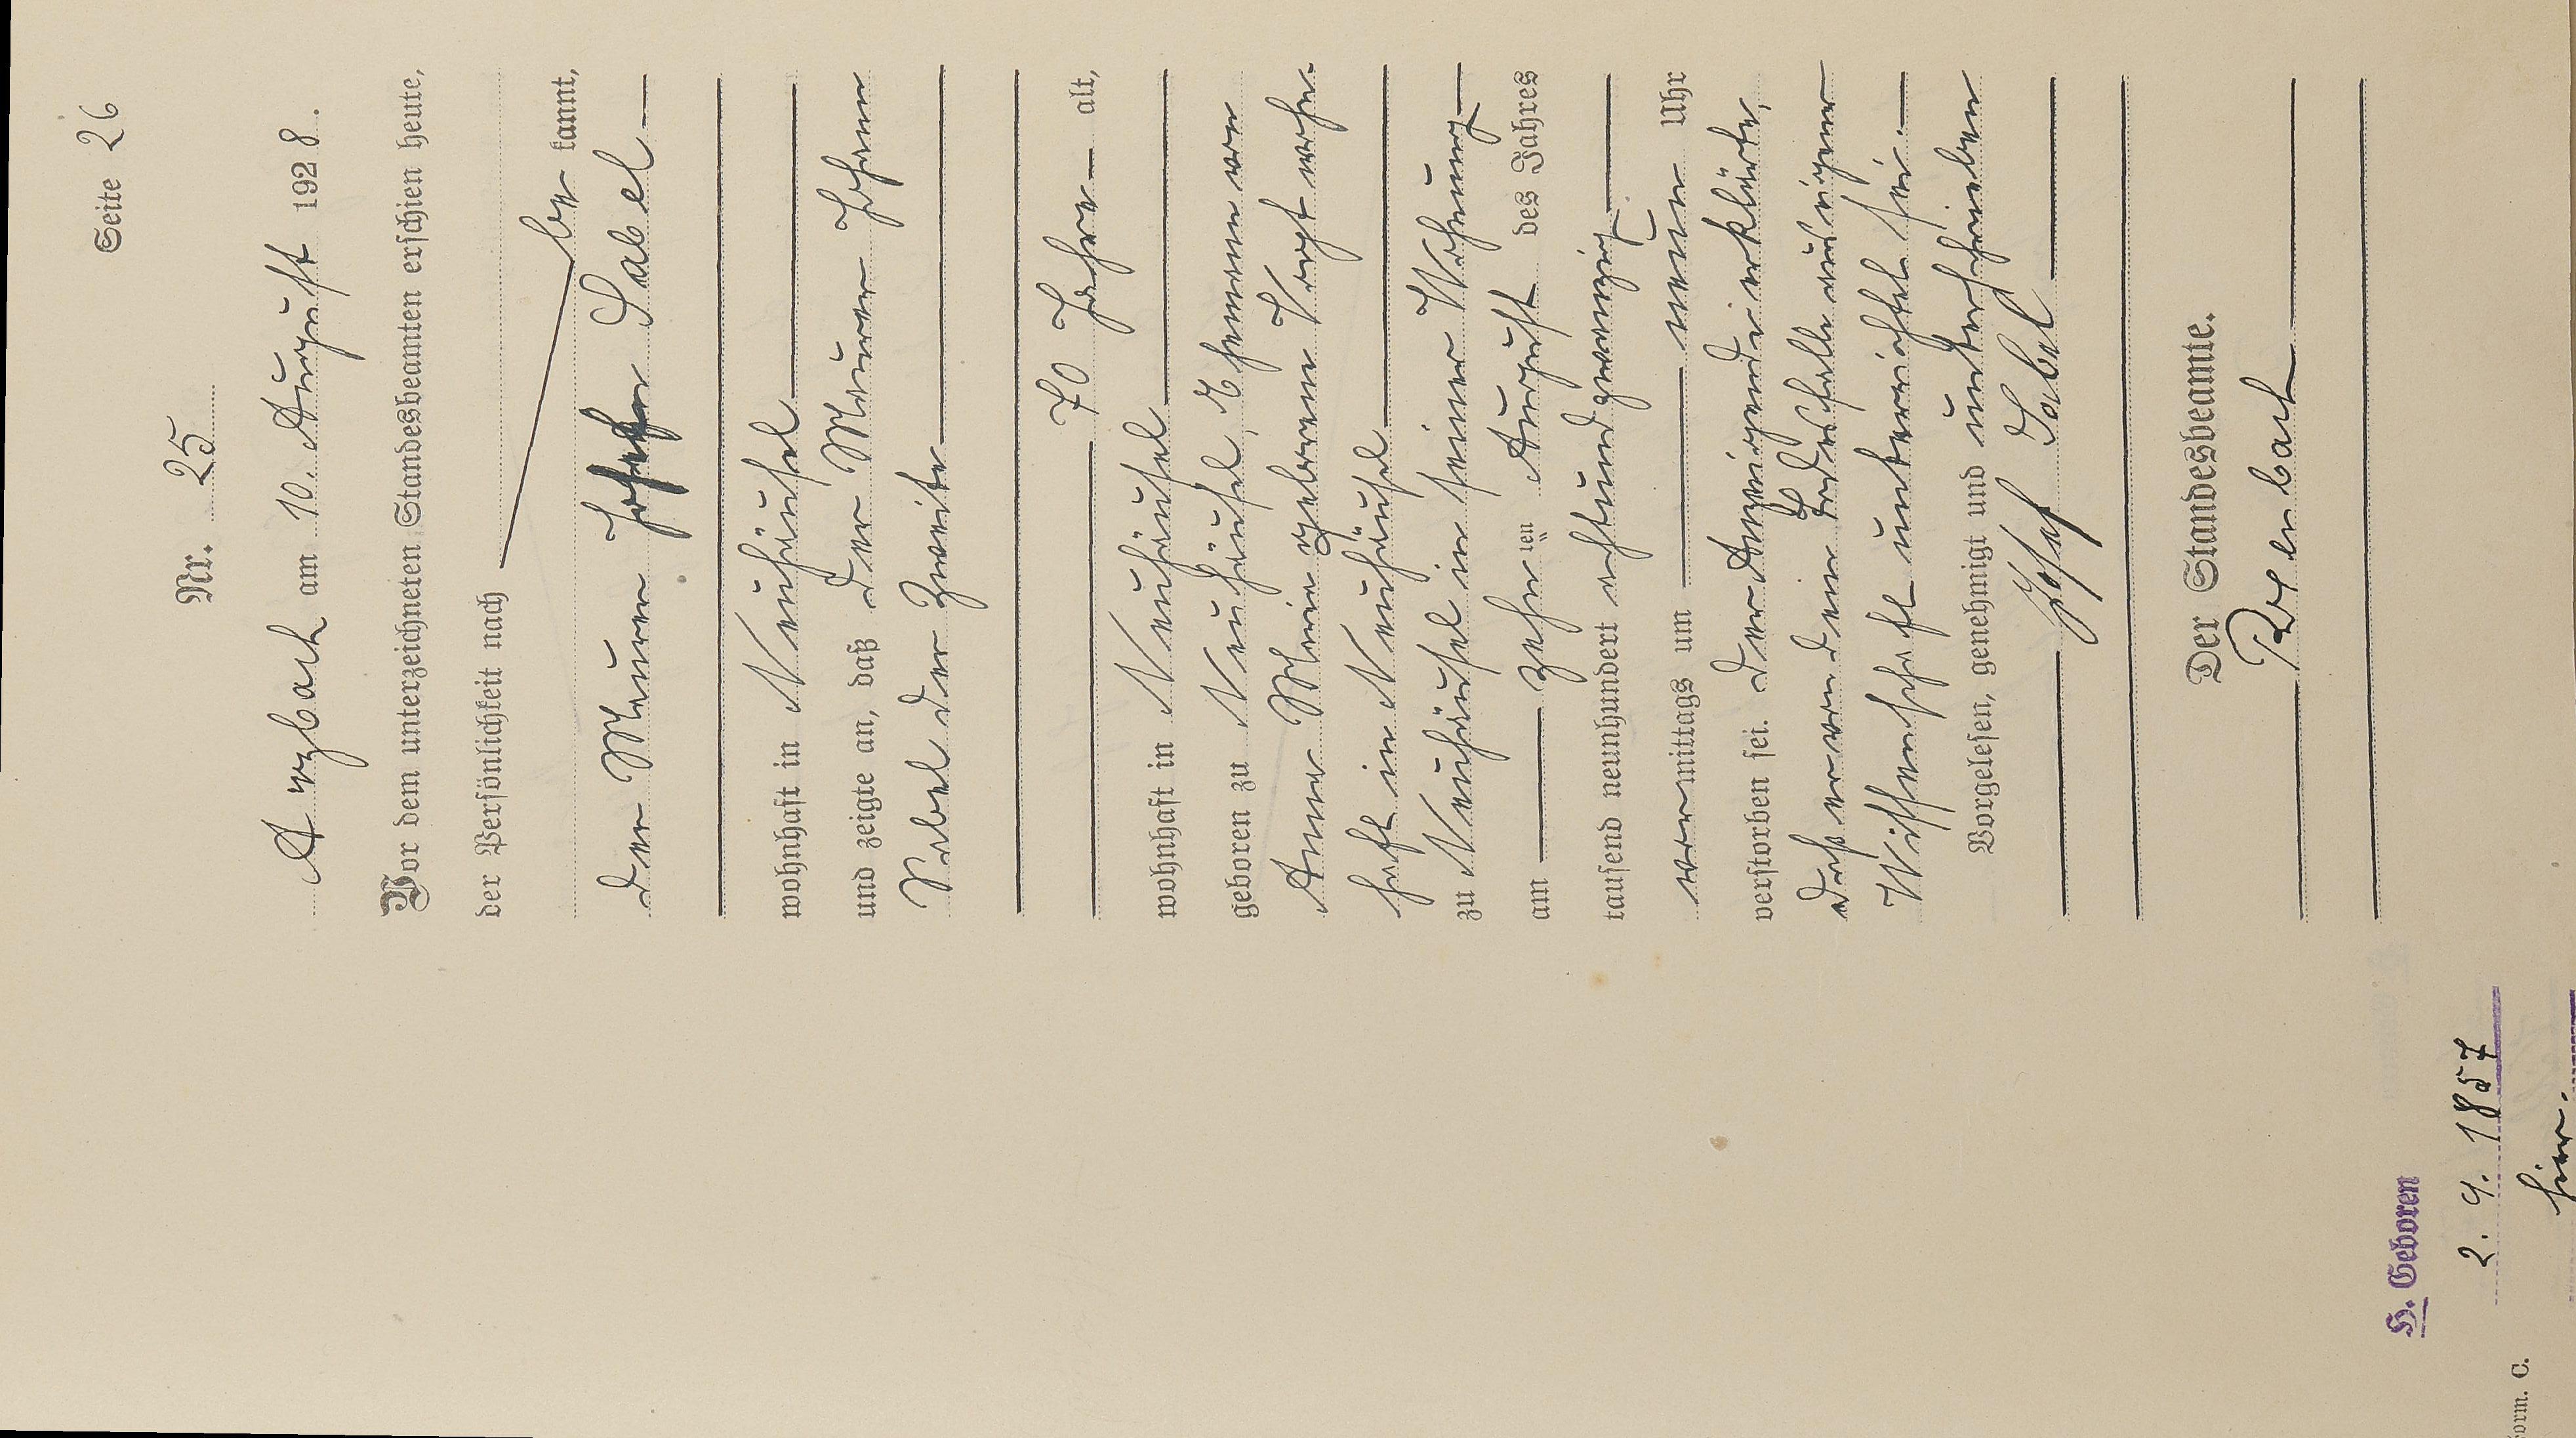 Seite 26
Nr. 25
Arzbach am 10. August 1928.
Vor dem unterzeichneten Standesbeamten erschien heute,
der Persönlichkeit nach
be kannt,
der Maurer Josef Sabel
wohnhaft in Neuhäusel
und zeigte an, daß der Maurer Johann
Sabel der Zweite
70 Jahre alt,
wohnhaft in Neuhäusel
geboren zu Neuhäusel, Ehemann von
Anna Maria geborene Vogt wohn
haft in Neuhäusel
zu Neuhäusel in seiner Wohnung
am zehn ten August des Jahres
tausend neunhundert achtundzwanzig
vormittags um neun Uhr
verstorben sei. Der Anzeigende erklärte,
daß er von dem Todesfalle aus eigener
Wissenschaft unterrichtet sei.
Vorgelesen, genehmigt und unterschrieben
Josef Sabel
Der Standesbeamte.
H. Geboren
2. 9. 1857
hier.
orm. C.